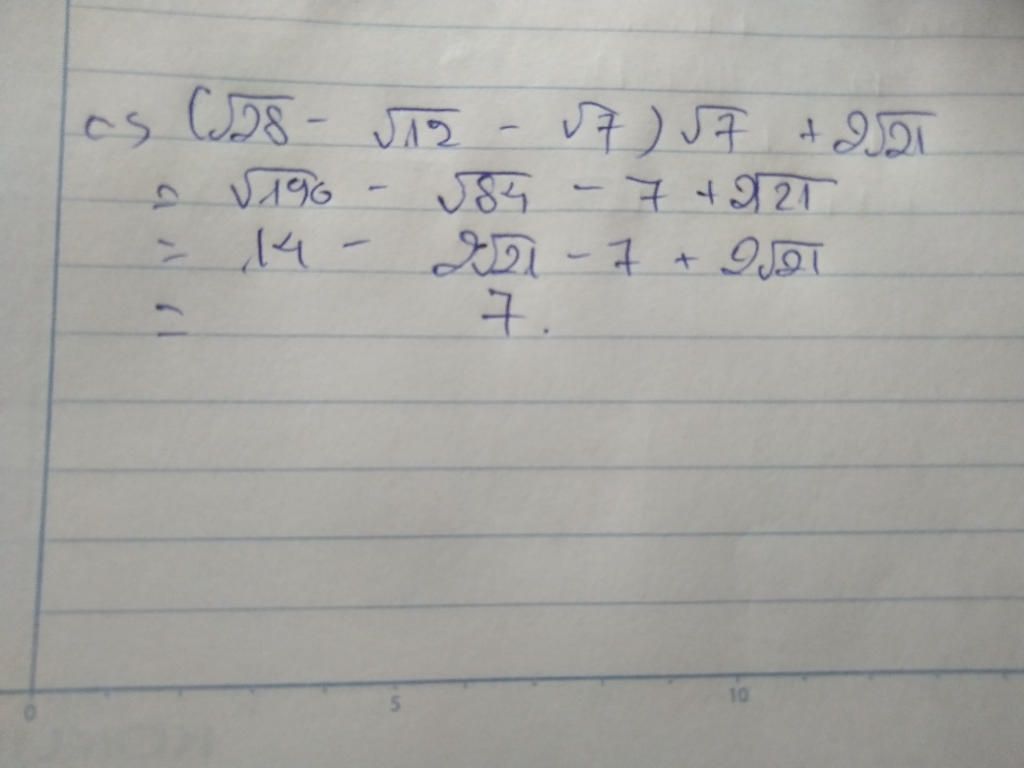 c) (√28 - √12 - √7)√7 + 2√21
= √196 - √84 - 7 + 2√21
= 14 - 2√21 - 7 + 2√21
= 7.
0 5 10